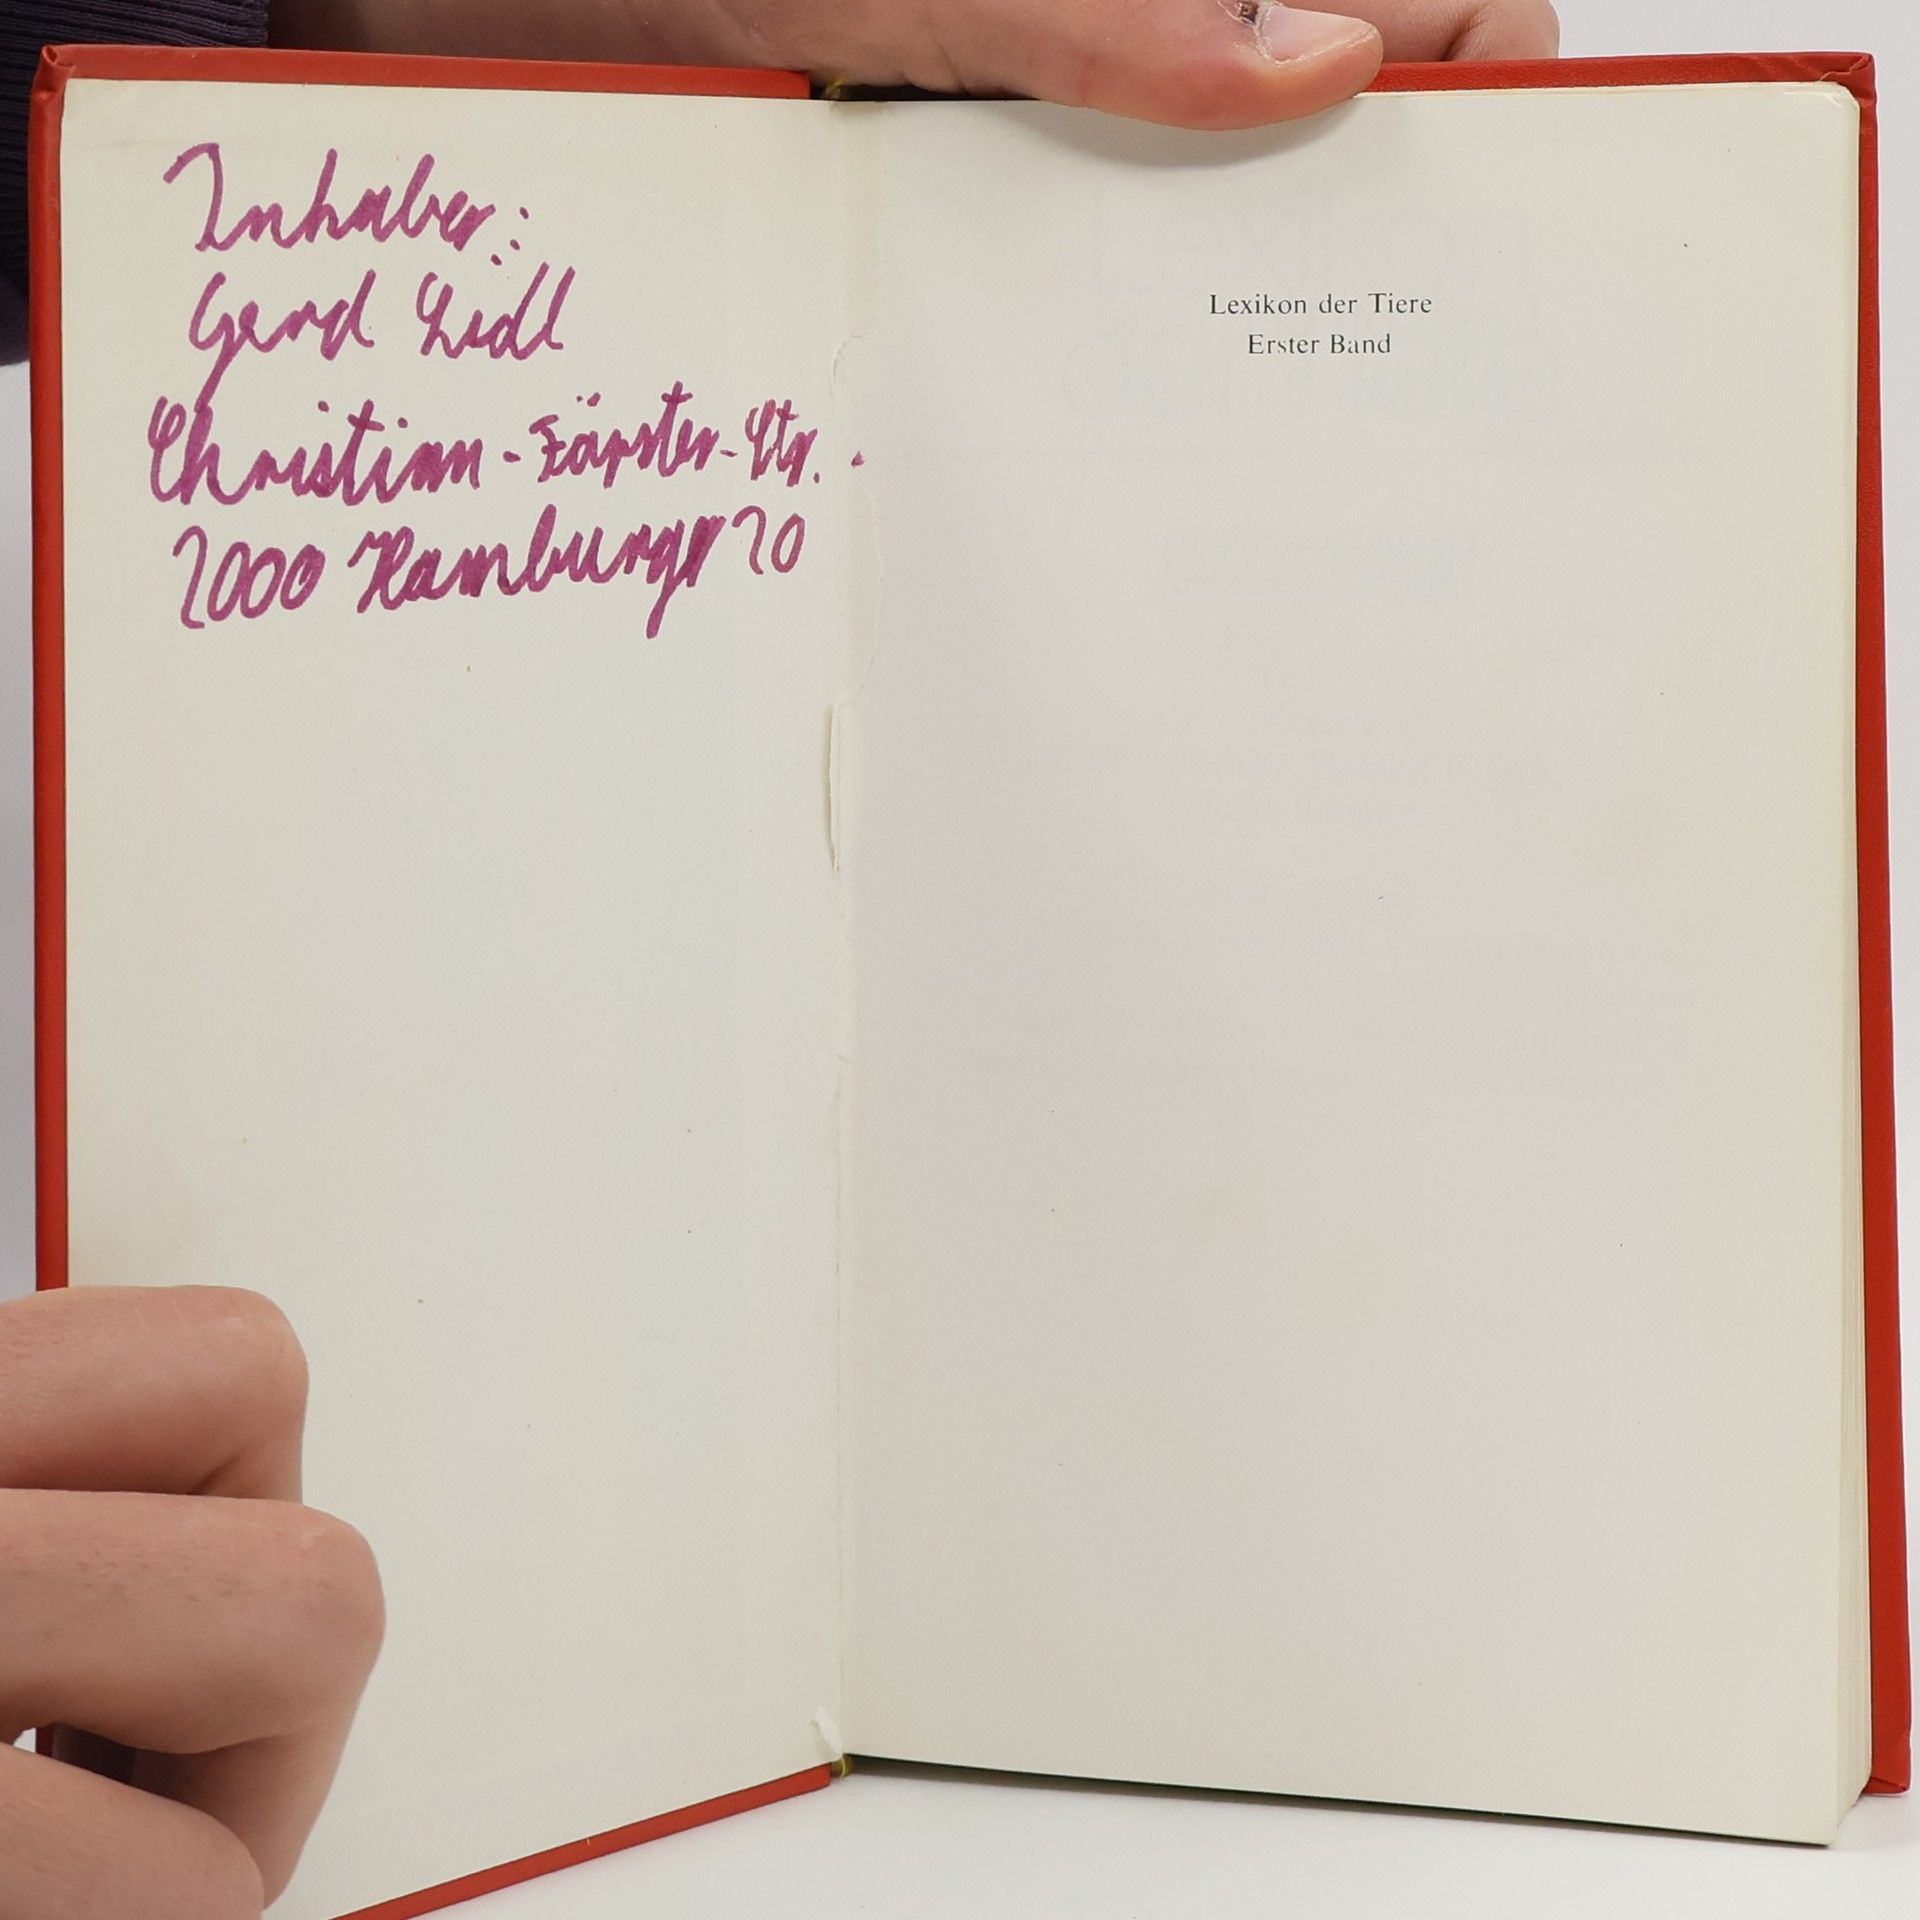 Inhaber:
Gerd Lidl
Christian-Förster-Str.
2000 Hamburg 20
Lexikon der Tiere
Erster Band